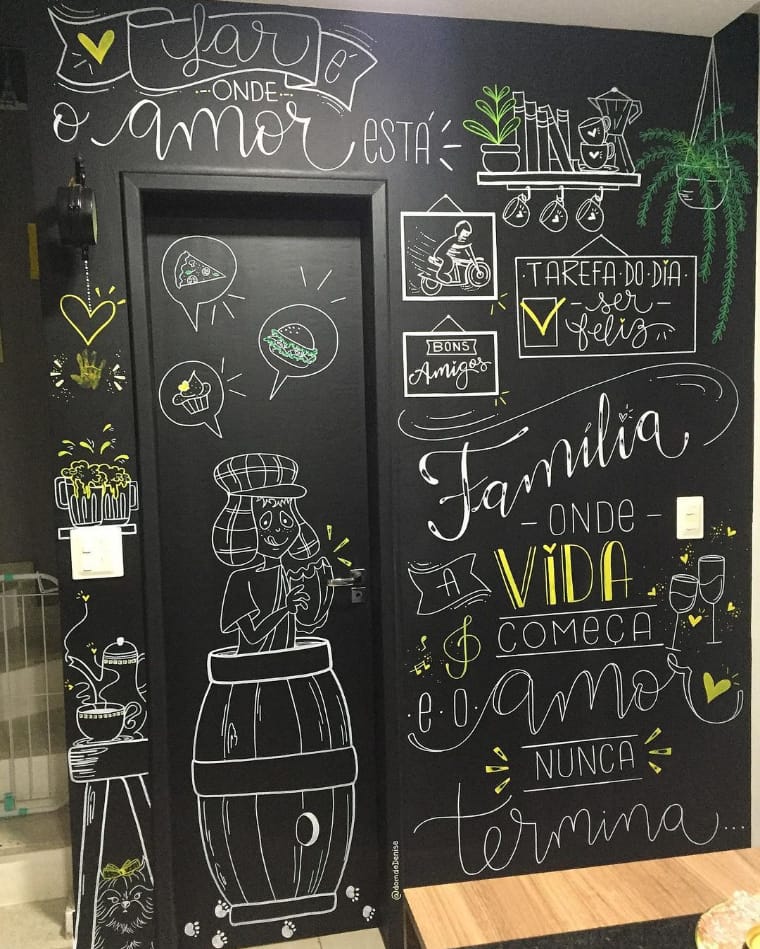 Lar é
ONDE
o amor ESTÁ
TAREFA·DO·DIA
ser
feliz
BONS
Amigos
Família
- ONDE -
A VIDA
COMEÇA
·e·o·amor
NUNCA
termina...
@domdaDenise